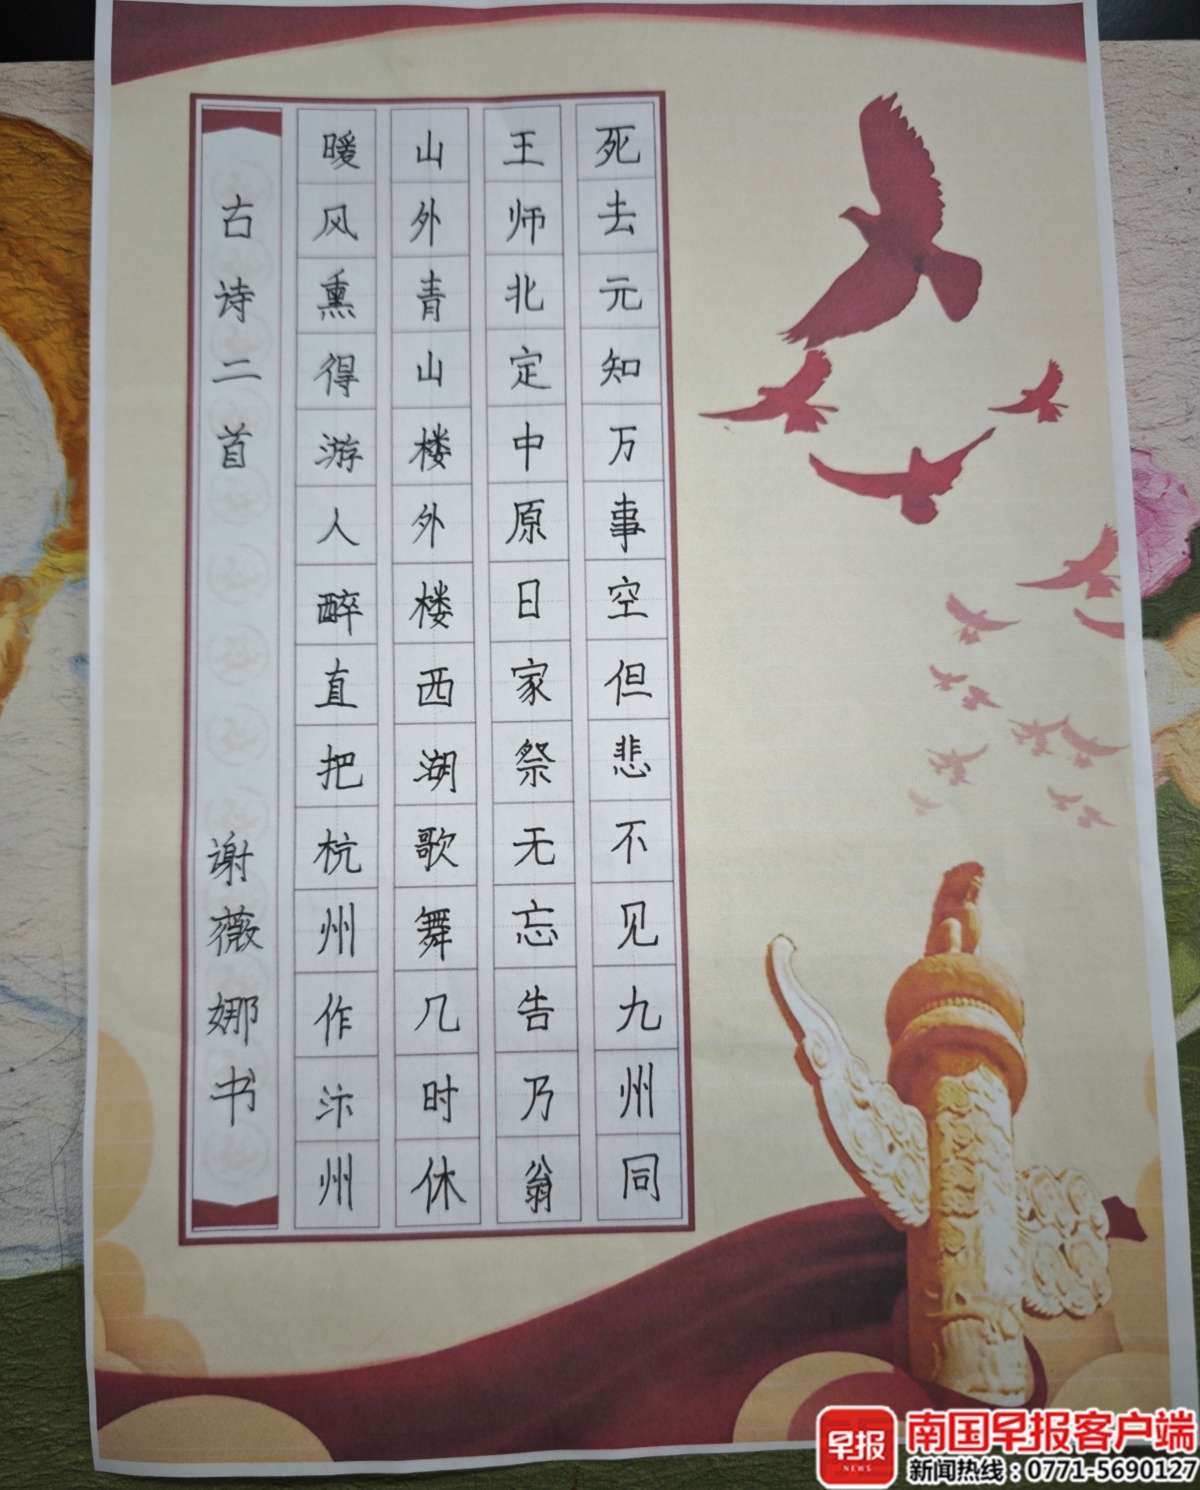 死去元知万事空但悲不见九州同
王师北定中原日家祭无忘告乃翁
山外青山楼外楼西湖歌舞几时休
暖风熏得游人醉直把杭州作汴州
古诗二首 谢薇娜书
早报
NEWS
南国早报客户端
新闻热线：0771-5690127